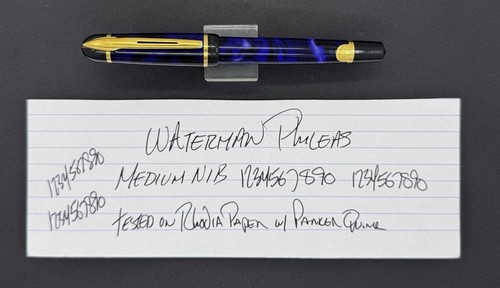 WATERMAN PHILEAS
1234567890 MEDIUM NIB 1234567890 1234567890
1234567890 TESTED ON RHODIA PAPER W/ PARKER QUINK